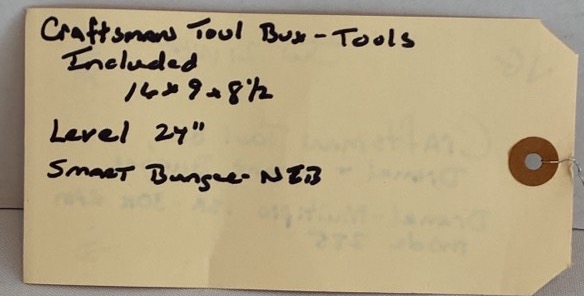 Craftsman Tool Box - Tools
Included
16 x 9 x 8 1/2
Level 24"
Smart Bungee - NIB